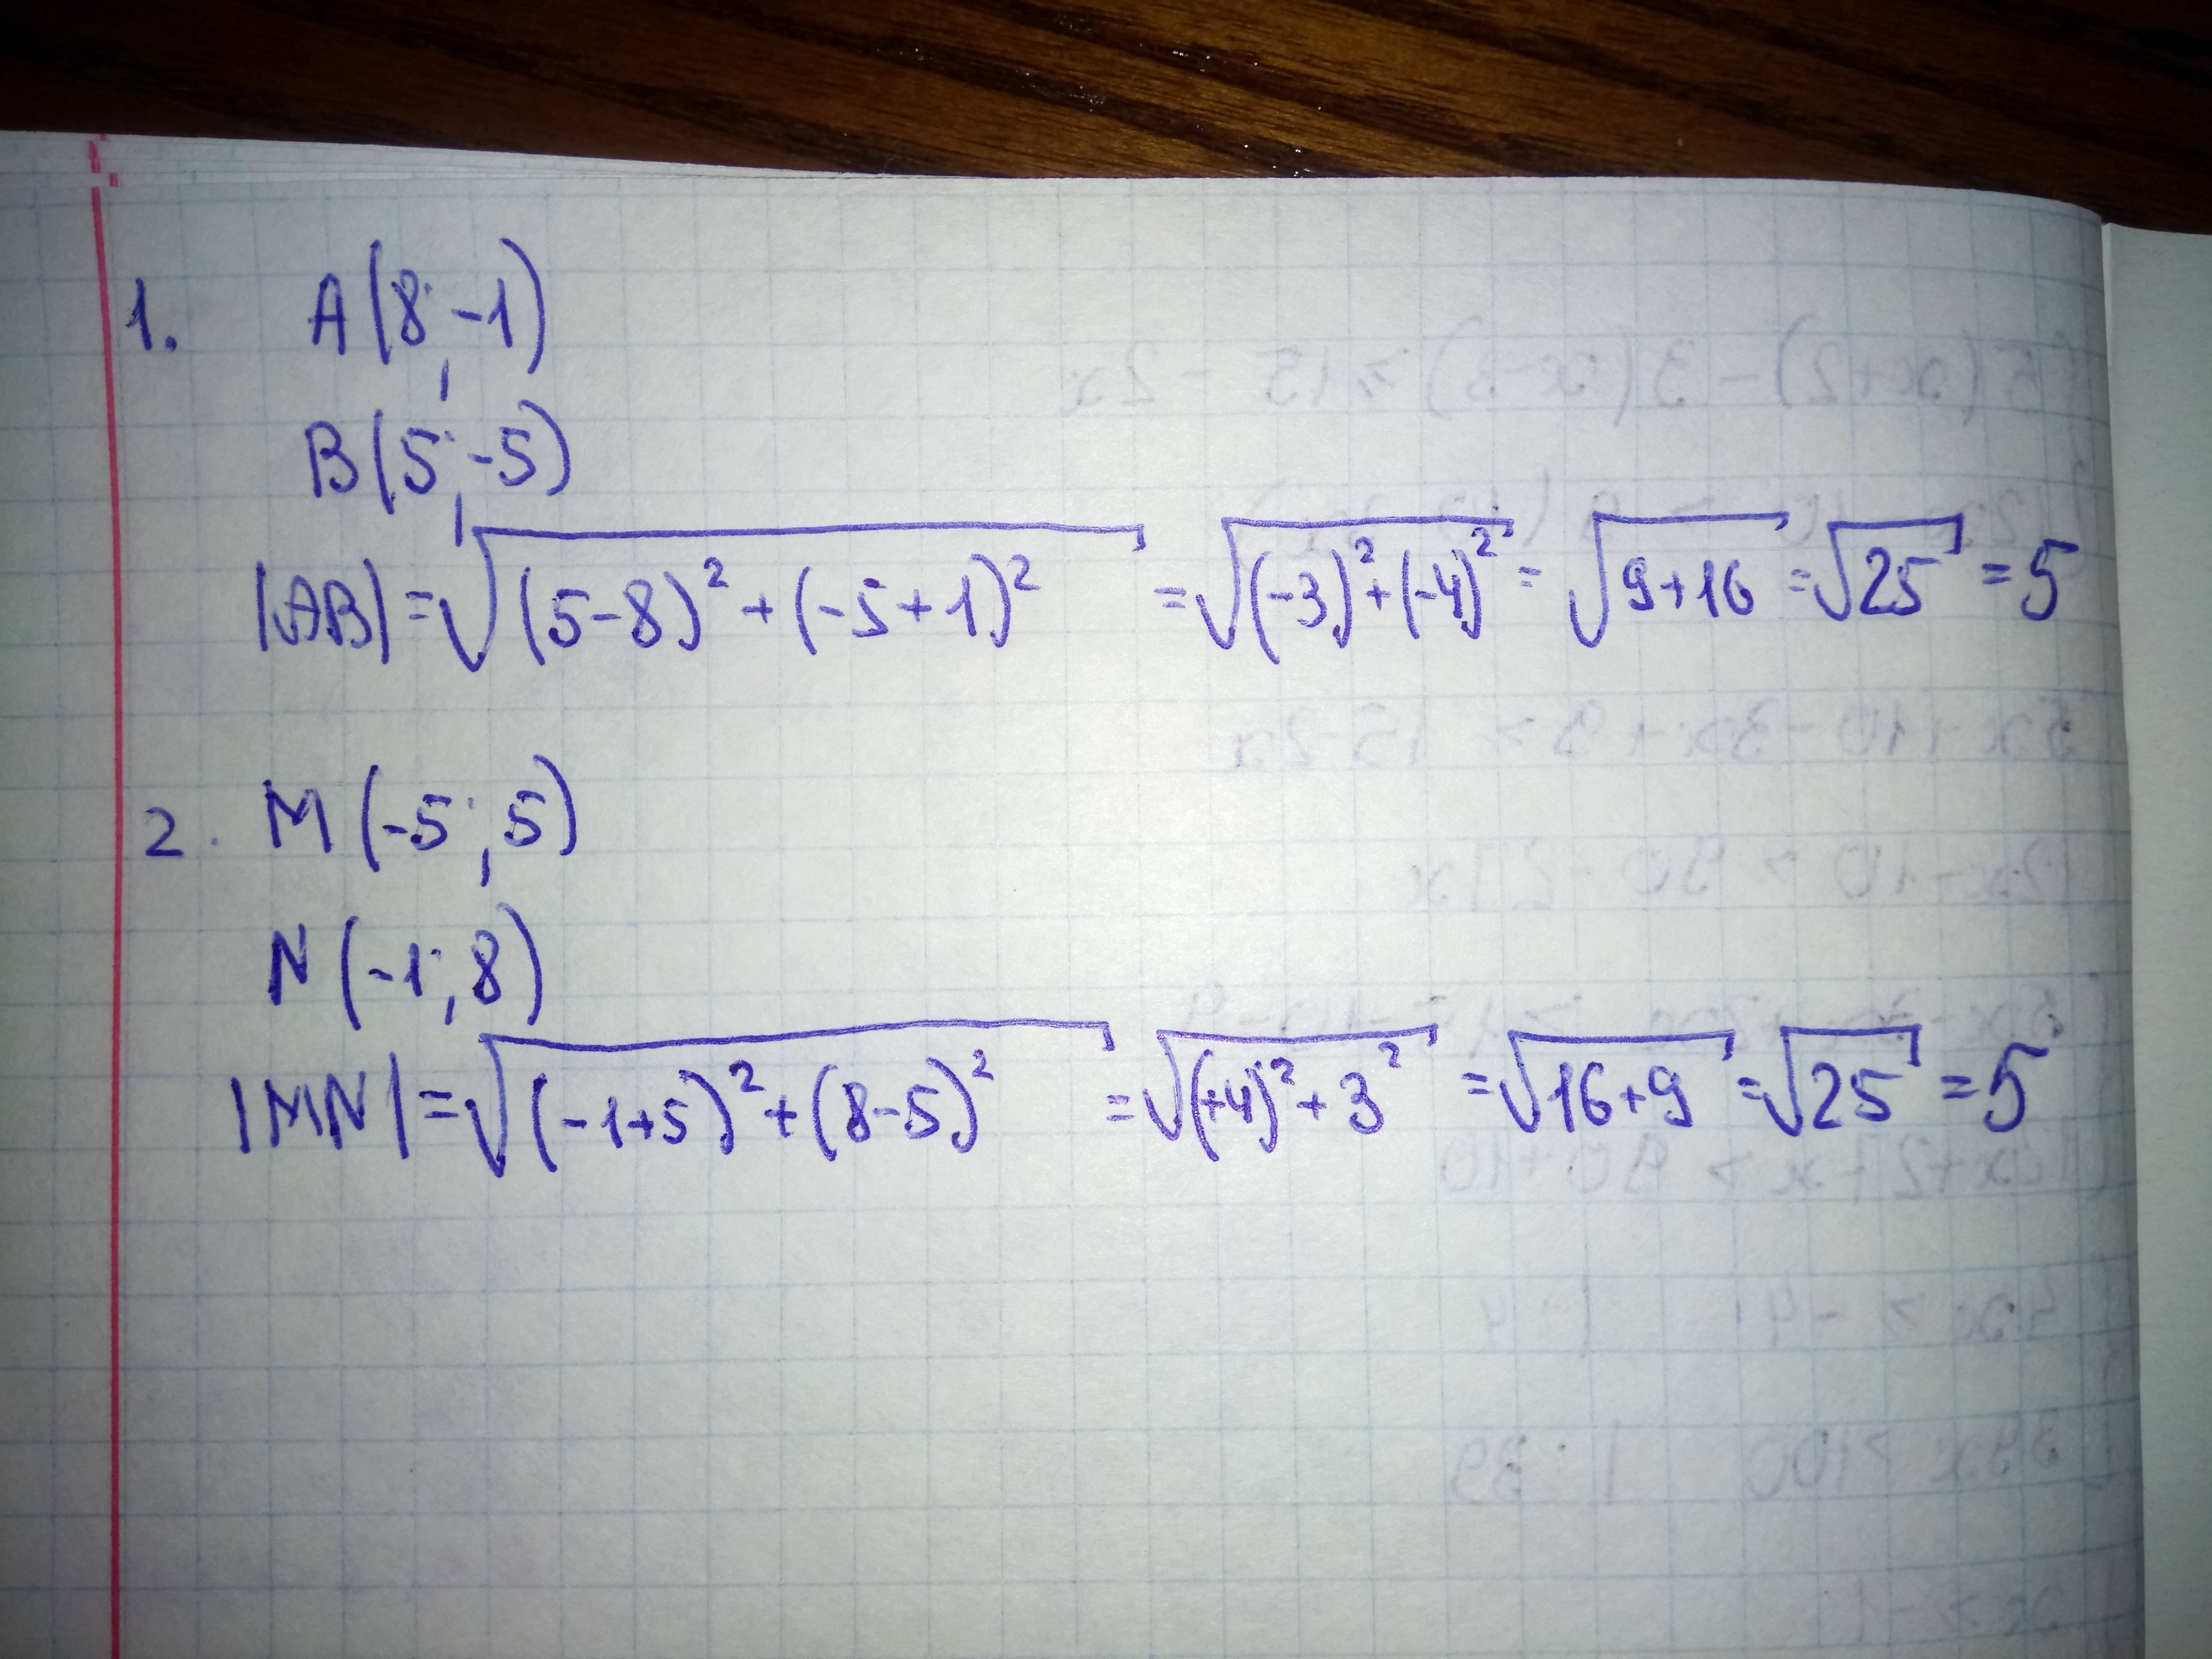 1. A(8;-1)
B(5;-5)
|AB|=√(5-8)²+(-5+1)² =√(-3)²+(-4)² = √9+16 =√25 =5
2. M(-5;5)
N(-1;8)
|MN|=√(-1+5)²+(8-5)² =√(+4)²+3² =√16+9 =√25 =5